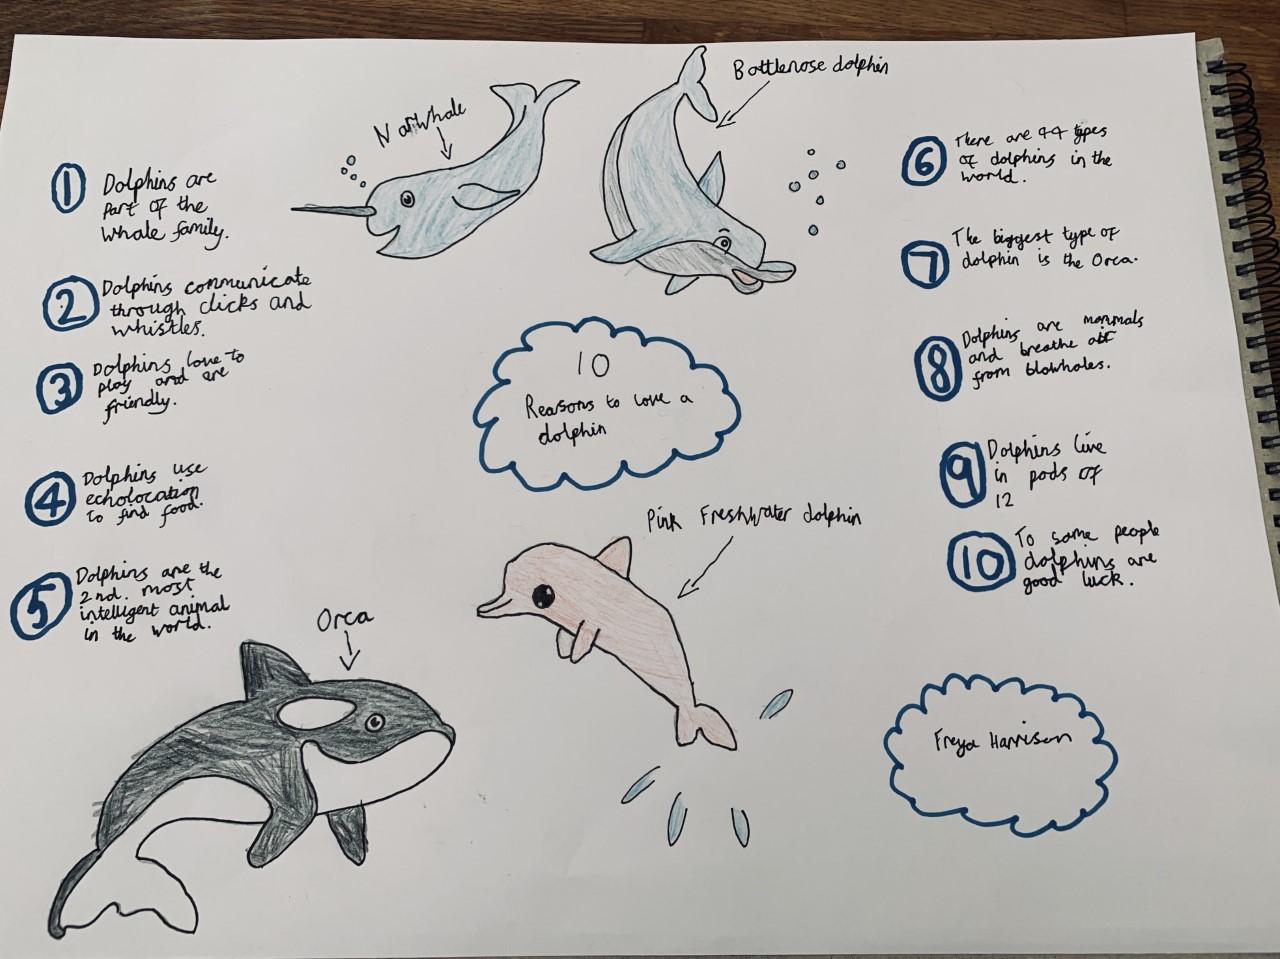 Narwhale
Bottlenose dolphin
1
Dolphins are
part of the
whale family.
2
Dolphins communicate
through clicks and
whistles.
3
Dolphins love to
play and are
friendly.
4
Dolphins use
echolocation
to find food.
5
Dolphins are the
2nd. most
intelligent animal
in the world.
10
Reasons to love a
dolphin
6
There are 44 types
of dolphins in the
world.
7
The biggest type of
dolphin is the Orca.
8
Dolphins are mammals
and breathe air
from blowholes.
9
Dolphins live
in pods of
12
10
To some people
dolphins are
good luck.
Pink Freshwater dolphin
Orca
Freya Harrison